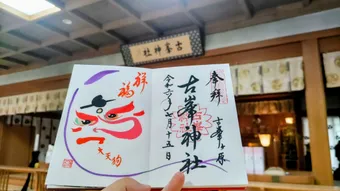 古峯神社
奉拝
古峯ヶ原
古峯神社
令和二年七月十五日
祥福
大天狗